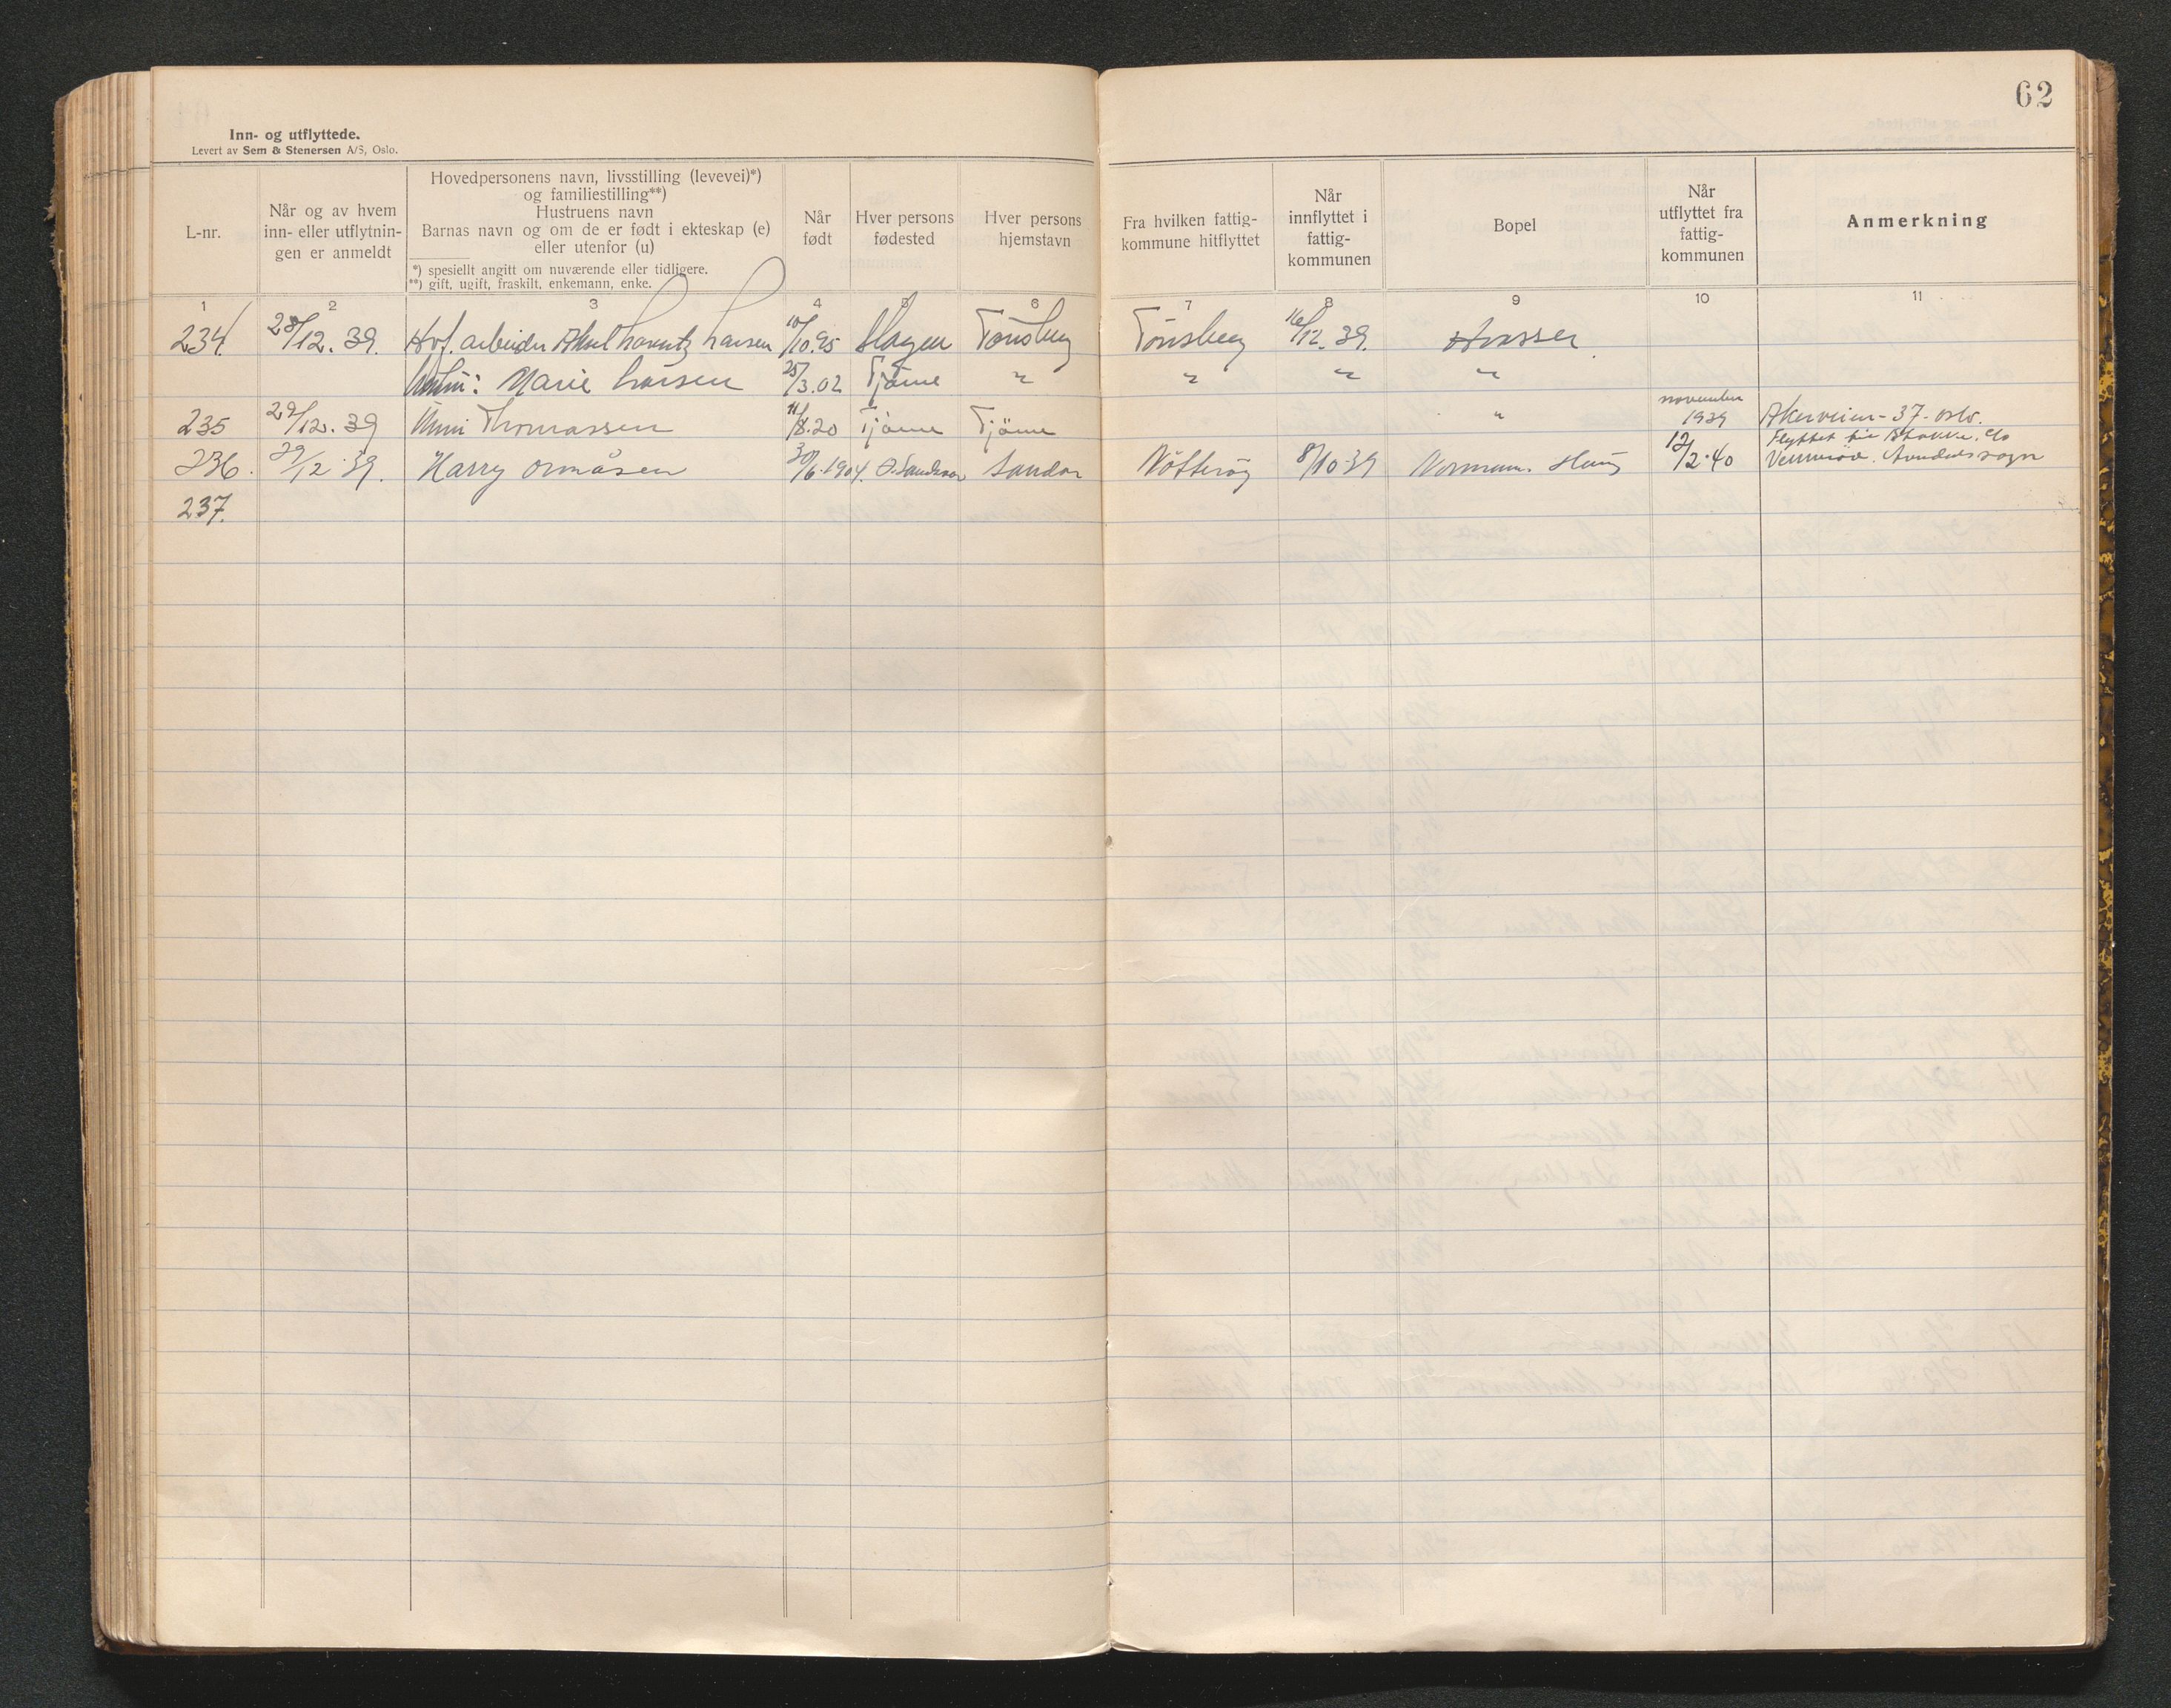 62
Inn- og utflyttede.
Levert av Sem & Stenersen A/S, Oslo.
L-nr.
Når og av hvem
inn- eller utflytnin-
gen er anmeldt
Hovedpersonens navn, livsstilling (levevei)*)
og familiestilling**)
Hustruens navn
Barnas navn og om de er født i ekteskap (e)
eller utenfor (u)
*) spesiellt angitt om nuværende eller tidligere.
**) gift, ugift, fraskilt, enkemann, enke.
Når
født
Hver persons
fødested
Hver persons
hjemstavn
Fra hvilken fattig-
kommune hitflyttet
Når
innflyttet i
fattig-
kommunen
Bopel
Når
utflyttet fra
fattig-
kommunen
Anmerkning
1 2 3 4 5 6 7 8 9 10 11
234. 28/12. 39. Hvf. arbeider Aksel Lorentz Larsen 10/10.95 Slagen Tønsberg Tønsberg 16/12. 39. Hvasser
Marie Larsen 25/3.02 Tjöme " " " "
235 29/12. 39 Thomassen 11/8.20 Tjöme Tjöme " november 1939 Akerveien - 37. Oslo.
236. 29/12.39. Harry Ormåsen 30/6.1904. Sandar Nötteröy 8/10 39 Haug 12/2.40 Flyttet til Stokke. c/o
sogn
237.